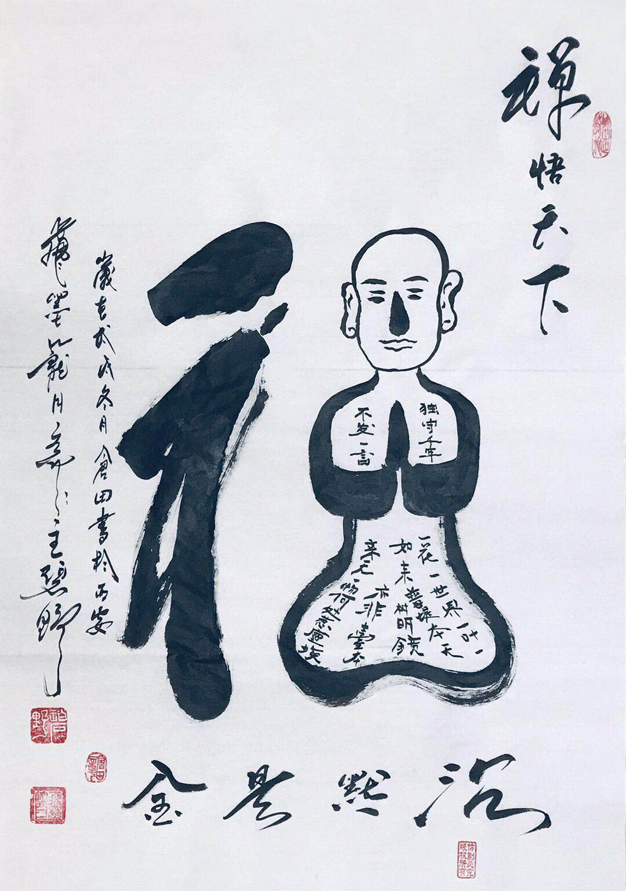 禅悟天下
佛
独守千年
不发一言
一花一世界一叶
一如来菩提本无
树明镜
亦非臺本
来无一物何处惹塵埃
沉默是金
歲在戊戌冬月倉田書於西安
墨籠月斋主碧野